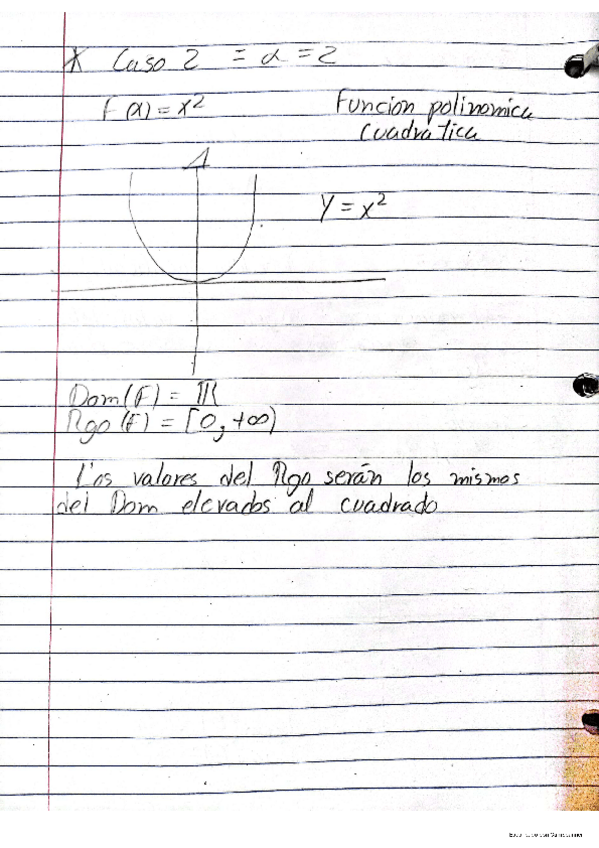 * Caso 2 = α = 2
F(x) = x²
Función polinomica
cuadratica
y = x²
Dom(F) = ℝ
Rgo (F) = [0, +∞)
Los valores del Rgo serán los mismos
del Dom elevados al cuadrado